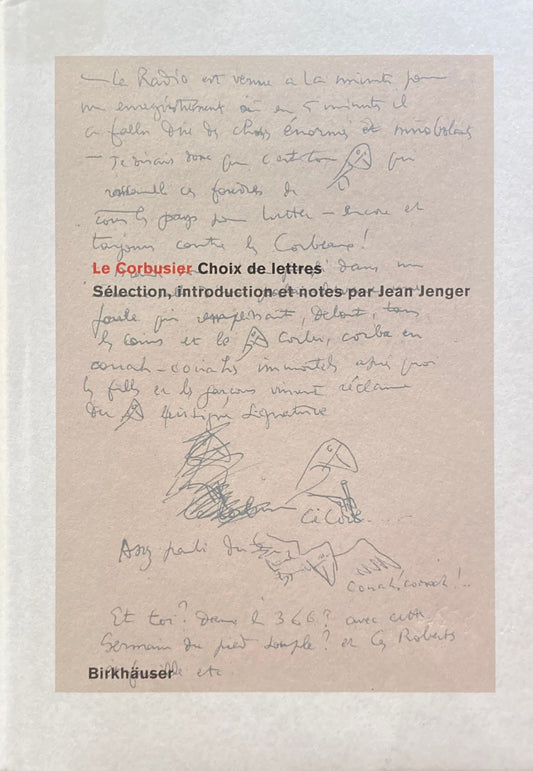 — La Radio est venue a la minute pour
un enregistrement où en 5 minutes il
a fallu dire des choses énormes et mirobolants
— Je disais donc que c'est ton qui
ces foudres de
tous les pays pour lutter – encore et
toujours contre les Corbeaux!
Le Corbusier Choix de lettres
dans un
Sélection, introduction et notes par Jean Jenger
foule qui remplissant, debout, tous
les coins et le Corbu, corba en
couah – couahs immortels après quoi
les filles et les garçons vinrent réclamer
du signature
Assez parlé du
Couah, couah!..
Et toi? Dans le 366? avec cette
Germain du pied souple? et les Roberts
Birkhäuser
famille etc.